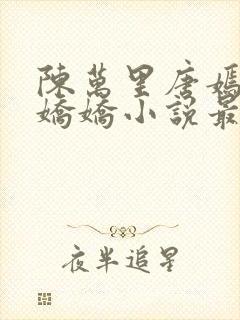 陳萬里唐嫣
嬌嬌小説最
夜半追星